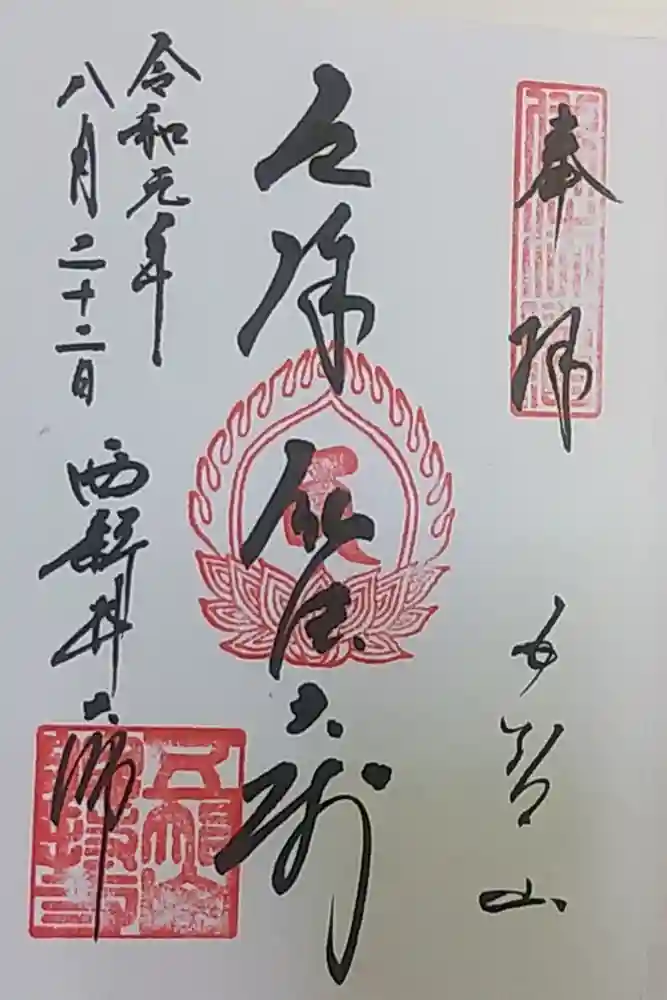 奉拝
五智山
厄除弘法大師
令和元年
八月二十二日
西新井大師